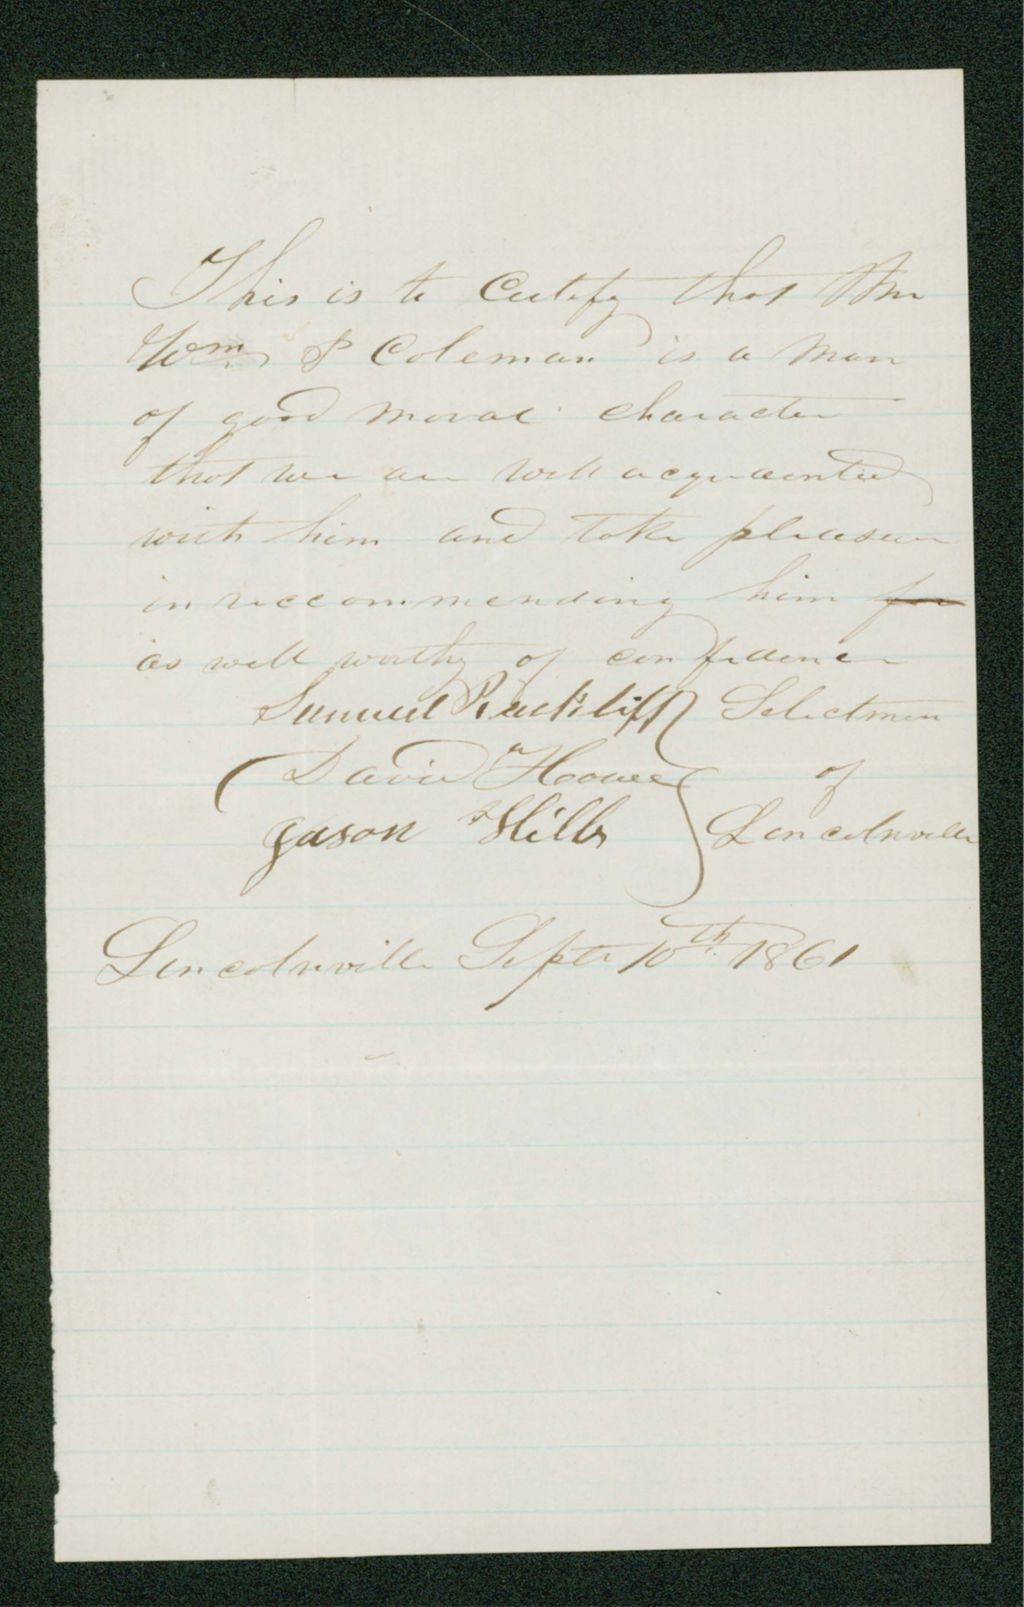 This is to Certify that Mr
Wm P Coleman is a Man
of good moral character
that we are well acquainted
with him and take pleasure
in reccommending him for
as well worthy of confidence
Samuel Rackliff Selectmen
David Howe of
Jason Hills Lincolnville
Lincolnville Sept 10th 1861